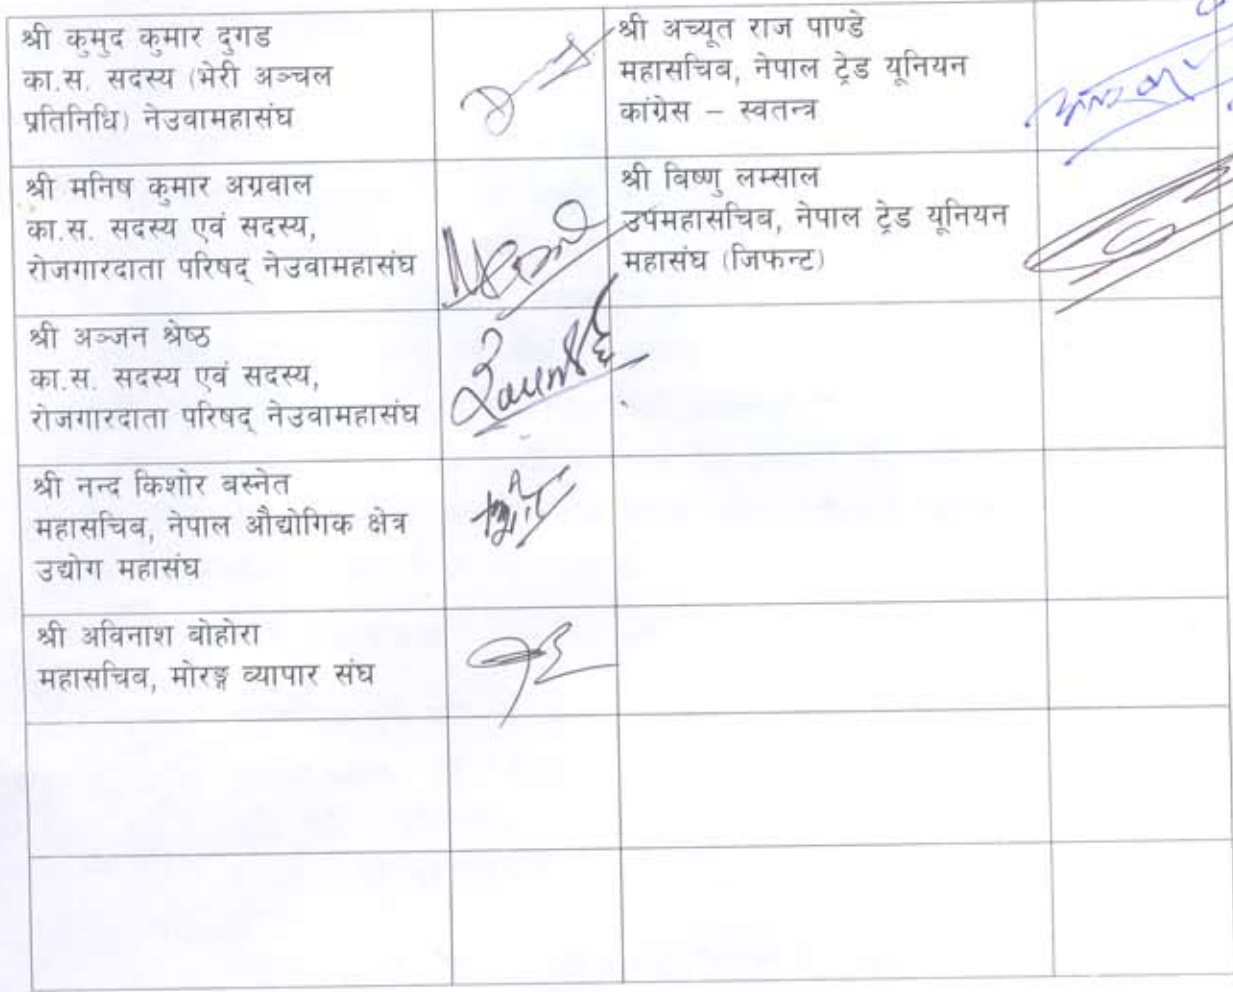 श्री कुमुद कुमार दुगड
का.स. सदस्य (भेरी अञ्चल
प्रतिनिधि) नेउवामहासंघ
श्री अच्यूत राज पाण्डे
महासचिव, नेपाल ट्रेड यूनियन
कांग्रेस – स्वतन्त्र
श्री मनिष कुमार अग्रवाल
का.स. सदस्य एवं सदस्य,
रोजगारदाता परिषद् नेउवामहासंघ
श्री बिष्णु लम्साल
उपमहासचिव, नेपाल ट्रेड यूनियन
महासंघ (जिफन्ट)
श्री अञ्जन श्रेष्ठ
का.स. सदस्य एवं सदस्य,
रोजगारदाता परिषद् नेउवामहासंघ
श्री नन्द किशोर बस्नेत
महासचिव, नेपाल औद्योगिक क्षेत्र
उद्योग महासंघ
श्री अविनाश बोहोरा
महासचिव, मोरङ्ग व्यापार संघ